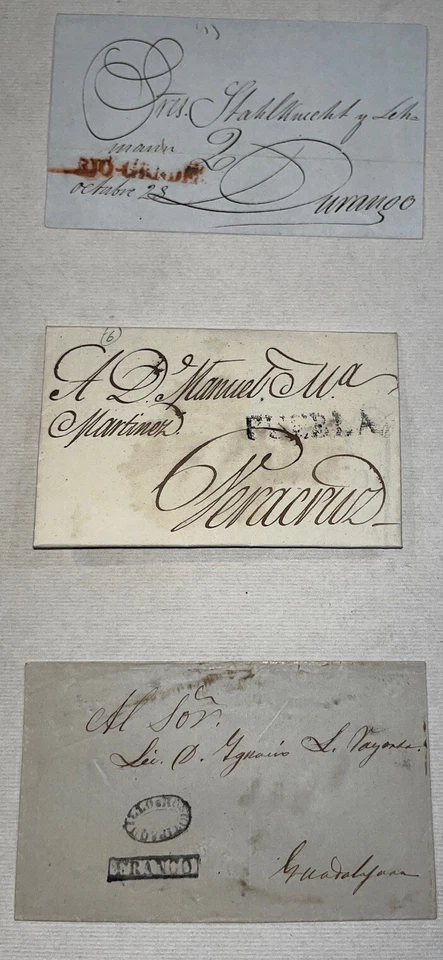 Sres. Stahlknecht y Leh-
mann
2
RIO-GRANDE
octubre 28
Durango
(6)
A D.n Manuel. M.a
Martinez.
PUEBLA
Veracruz
Al Sor.
Lic. D. Ygnacio L.
FRANCO
Guadalajara